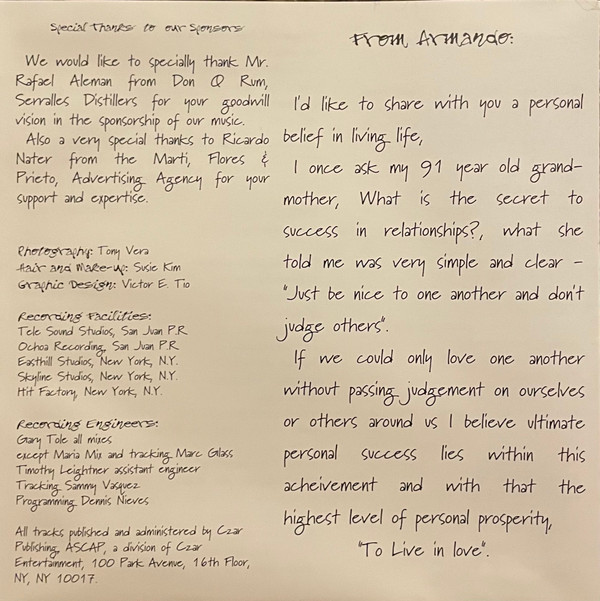 Special Thanks to our Sponsors
We would like to specially thank Mr.
Rafael Aleman from Don Q Rum,
Serralles Distillers for your goodwill
vision in the sponsorship of our music.
Also a very special thanks to Ricardo
Nater from the Marti, Flores &
Prieto, Advertising Agency for your
support and expertise.
Photography: Tony Vera
Hair and Make-up: Susie Kim
Graphic Design: Victor E. Tio
Recording Facilities:
Tele Sound Studios, San Juan P.R
Ochoa Recording, San Juan P.R
Easthill Studios, New York, N.Y.
Skyline Studios, New York, N.Y.
Hit Factory, New York, N.Y.
Recording Engineers:
Gary Tole all mixes
except Maria Mix and tracking Marc Glass
Timothy Leightner assistant engineer
Tracking Sammy Vasquez
Programming Dennis Nieves
All tracks published and administered by Czar
Publishing, ASCAP, a division of Czar
Entertainment, 100 Park Avenue, 16th Floor,
NY, NY 10017.
From Armando:
I'd like to share with you a personal
belief in living life,
I once ask my 91 year old grand-
mother, What is the secret to
success in relationships?, what she
told me was very simple and clear -
"Just be nice to one another and don't
judge others".
If we could only love one another
without passing judgement on ourselves
or others around us I believe ultimate
personal success lies within this
acheivement and with that the
highest level of personal prosperity,
"To Live in love".